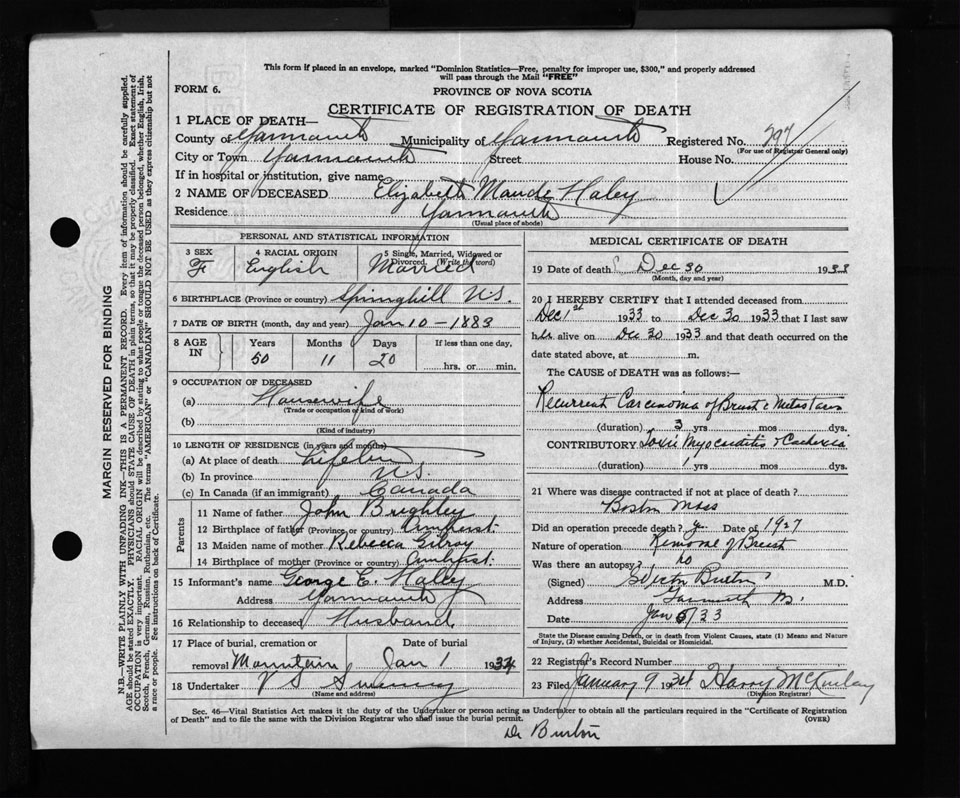 This form if placed in an envelope, marked "Dominion Statistics—Free, penalty for improper use, $300," and properly addressed
will pass through the Mail "FREE"
FORM 6.
PROVINCE OF NOVA SCOTIA
CERTIFICATE OF REGISTRATION OF DEATH
1 PLACE OF DEATH—
County of Yarmouth Municipality of Yarmouth Registered No. 797
(For use of Registrar General only)
City or Town Yarmouth Street House No.
If in hospital or institution, give name
2 NAME OF DECEASED Elizabeth Maude Haley
Residence Yarmouth
(Usual place of abode)
PERSONAL AND STATISTICAL INFORMATION
3 SEX 4 RACIAL ORIGIN 5 Single, Married, Widowed or
Divorced. (Write the word)
F English Married
6 BIRTHPLACE (Province or country) Springhill N.S.
7 DATE OF BIRTH (month, day and year) Jan 10 - 1883
8 AGE IN Years Months Days If less than one day,
50 11 20 hrs. or min.
9 OCCUPATION OF DECEASED
(a) Housewife
(Trade or occupation or kind of work)
(b)
(Kind of industry)
10 LENGTH OF RESIDENCE (in years and months)
(a) At place of death Lifetime
(b) In province N.S.
(c) In Canada (if an immigrant) Canada
Parents
11 Name of father John Brighley
12 Birthplace of father (Province or country) Amherst
13 Maiden name of mother Rebecca Gilroy
14 Birthplace of mother (Province or country) Amherst.
15 Informant's name George E. Haley
Address Yarmouth
16 Relationship to deceased Husband
17 Place of burial, cremation or Date of burial
removal Mountain Jan 1 1934
18 Undertaker V S Sweeny
(Name and address)
MEDICAL CERTIFICATE OF DEATH
19 Date of death Dec 30 1933
(Month, day and year)
20 I HEREBY CERTIFY that I attended deceased from
Dec 1st 1933 to Dec 30 1933 that I last saw
her alive on Dec 30 1933 and that death occurred on the
date stated above, at m.
The CAUSE OF DEATH was as follows:—
Recurrent Carcinoma of Breast c Metastases
(duration) 3 yrs mos dys.
CONTRIBUTORY Toxic Myocarditis & Cachexia
(duration) 1 yrs mos dys.
21 Where was disease contracted if not at place of death?
Boston Mass
Did an operation precede death? y Date of 1927
Nature of operation Removal of Breast
Was there an autopsy? no
(Signed) Burton M.D.
Address Yarmouth
Date Jan 5/33
State the Disease causing Death, or in death from Violent Causes, state (1) Means and Nature
of Injury, (2) whether Accidental, Suicidal or Homicidal.
22 Registrar's Record Number
23 Filed January 9 1934 Harry McKinlay
(Division Registrar)
Sec. 46—Vital Statistics Act makes it the duty of the Undertaker or person acting as Undertaker to obtain all the particulars required in the "Certificate of Registration
of Death" and to file the same with the Division Registrar who shall issue the burial permit. (OVER)
Dr Burton
MARGIN RESERVED FOR BINDING
N.B.—WRITE PLAINLY WITH UNFADING INK—THIS IS A PERMANENT RECORD. Every item of information should be carefully supplied.
AGE should be stated EXACTLY. PHYSICIANS should STATE CAUSE OF DEATH in plain terms, so that it may be properly classified. Exact statement of
OCCUPATION is very important. RACIAL ORIGIN will be described by stating to what people or tongue the deceased person belonged, whether English, Irish,
Scotch, French, German, Russian, Ruthenian, etc. The terms "AMERICAN" or "CANADIAN" SHOULD NOT BE USED as they express citizenship but not
a race or people. See instructions on back of Certificate.